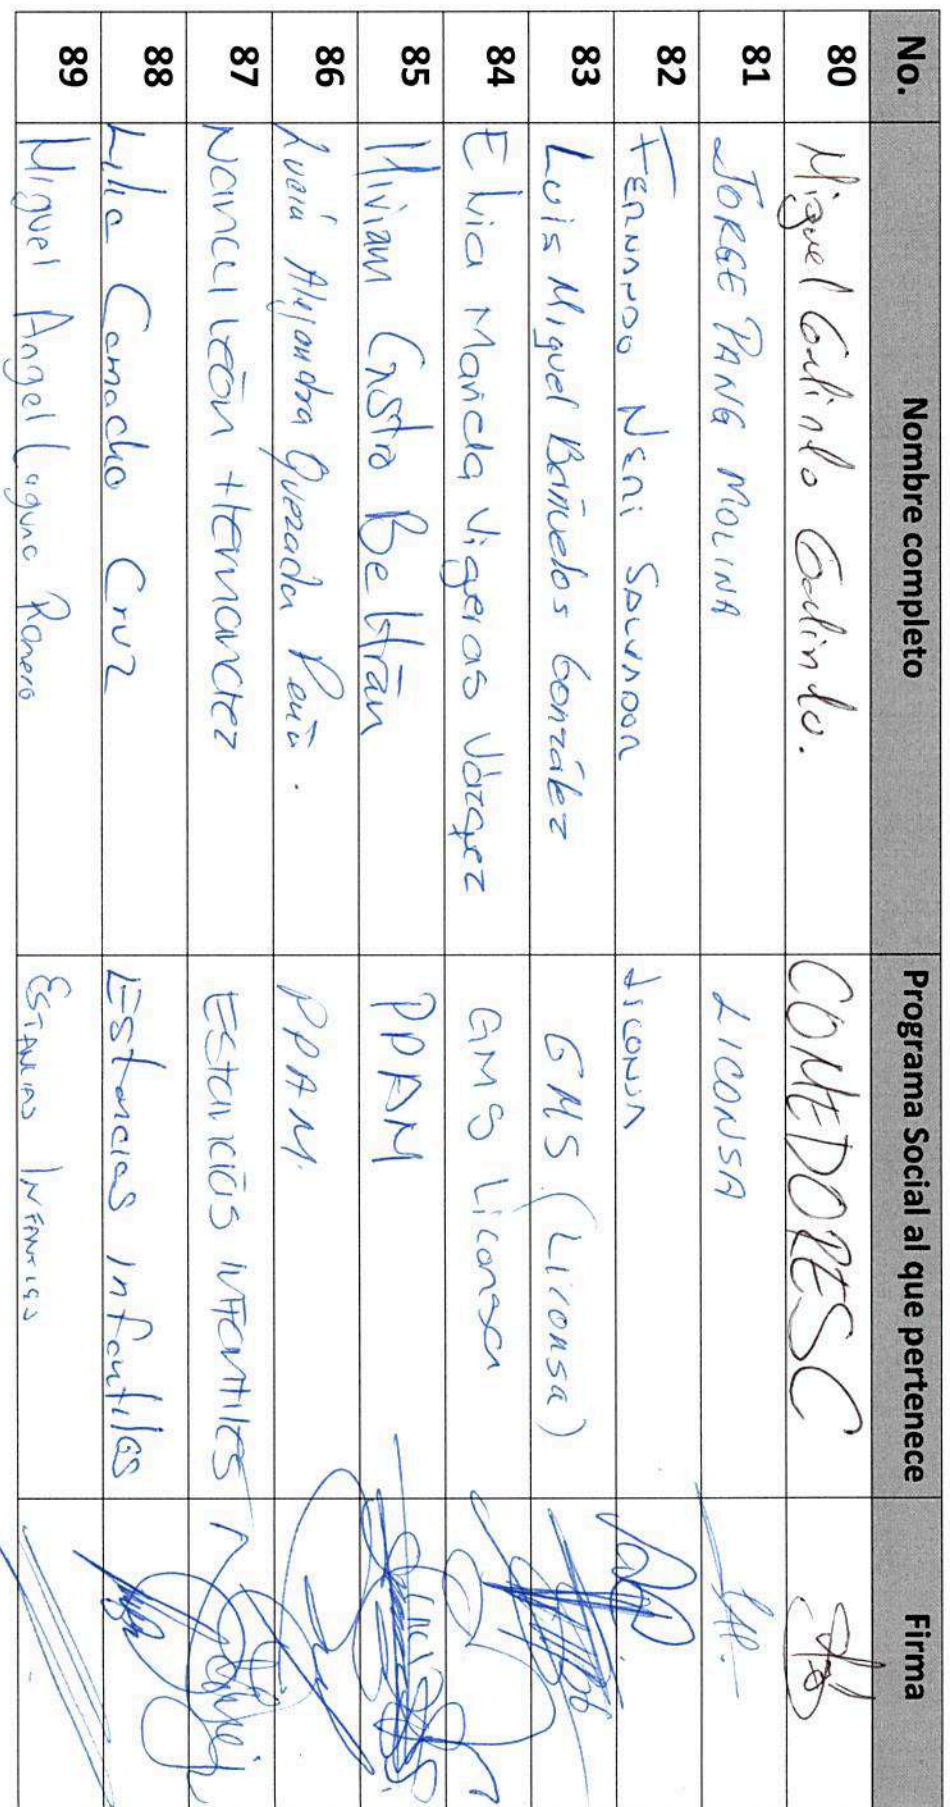 No. Nombre completo Programa Social al que pertenece Firma
80 Miguel Galindo Galindo. COMEDORESC
81 JORGE PANG MOLINA LICONSA
82 FERNANDO NERI SALVADOR LICONSA
83 Luis Miguel Bañuelos González GMS (Liconsa)
84 Elvia Maricla Vigeras Vázquez GMS Liconsa
85 Miviam Castro Beltrán PPAM
86 Lucía Alejandra Quezada Peña. PPAM.
87 Nanci León Hernandez Estancias infantiles
88 Lilia Camacho Cruz Estancias Infantiles
89 Miguel Angel Laguna Romero ESTANCIAS INFANTILES